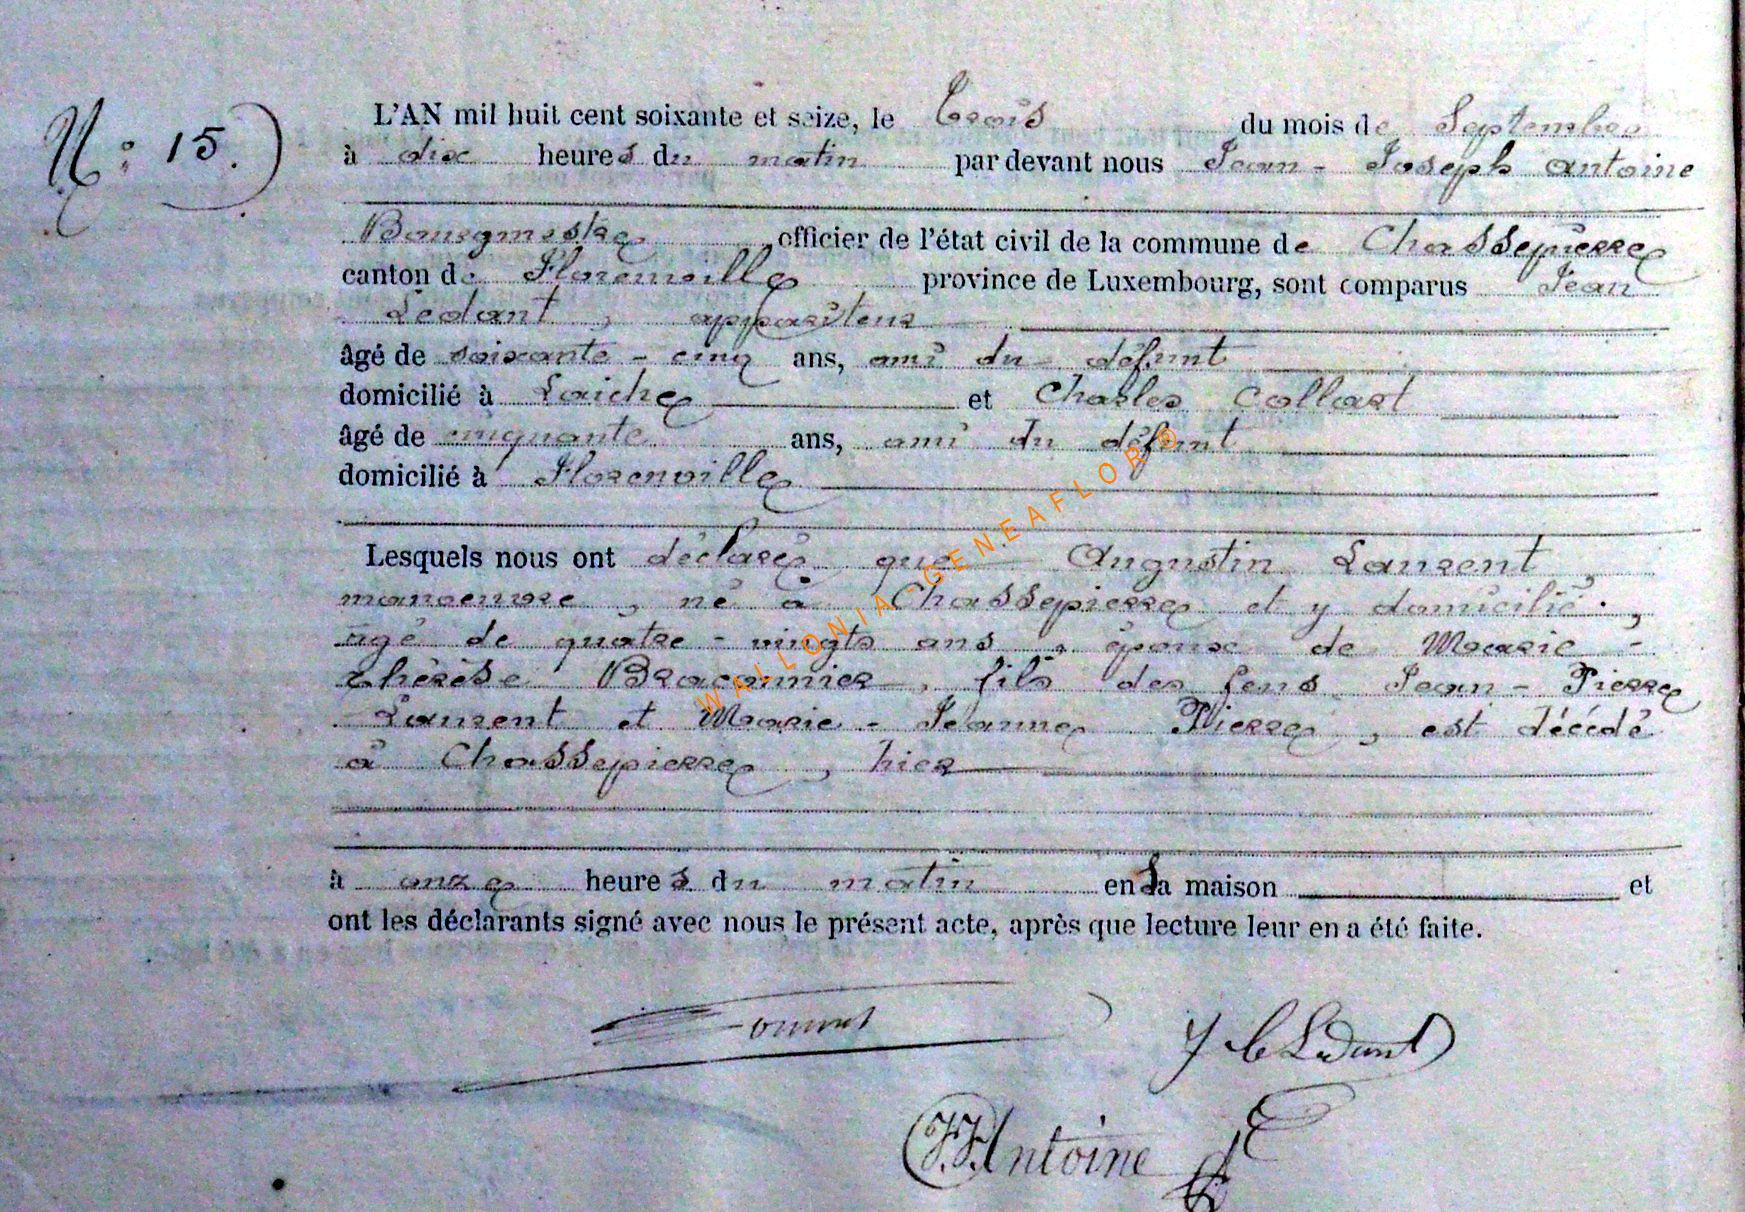 N: 15.
L'AN mil huit cent soixante et seize, le Trois du mois de Septembre
à dix heures du matin par devant nous Jean - Joseph Antoine
Bourgmestre officier de l'état civil de la commune de Chassepierre
canton de Florenville province de Luxembourg, sont comparus Jean
Ledant, appariteur
âgé de soixante - cinq ans, ami du défunt
domicilié à Laiche et Charles Collart
âgé de cinquante ans, ami du défunt
domicilié à Florenville
Lesquels nous ont déclaré que Augustin Laurent,
manoeuvre, né à Chassepierre et y domicilié,
âgé de quatre - vingts ans, époux de Marie -
thérèse Braconnier, fils des feus Jean - Pierre
Laurent et Marie - Jeanne Pierre, est décédé
à Chassepierre, hier
à onze heures du matin en sa maison et
ont les déclarants signé avec nous le présent acte, après que lecture leur en a été faite.
J Ledant
J.J. Antoine
WALLONIA-GENEAFLOR ©